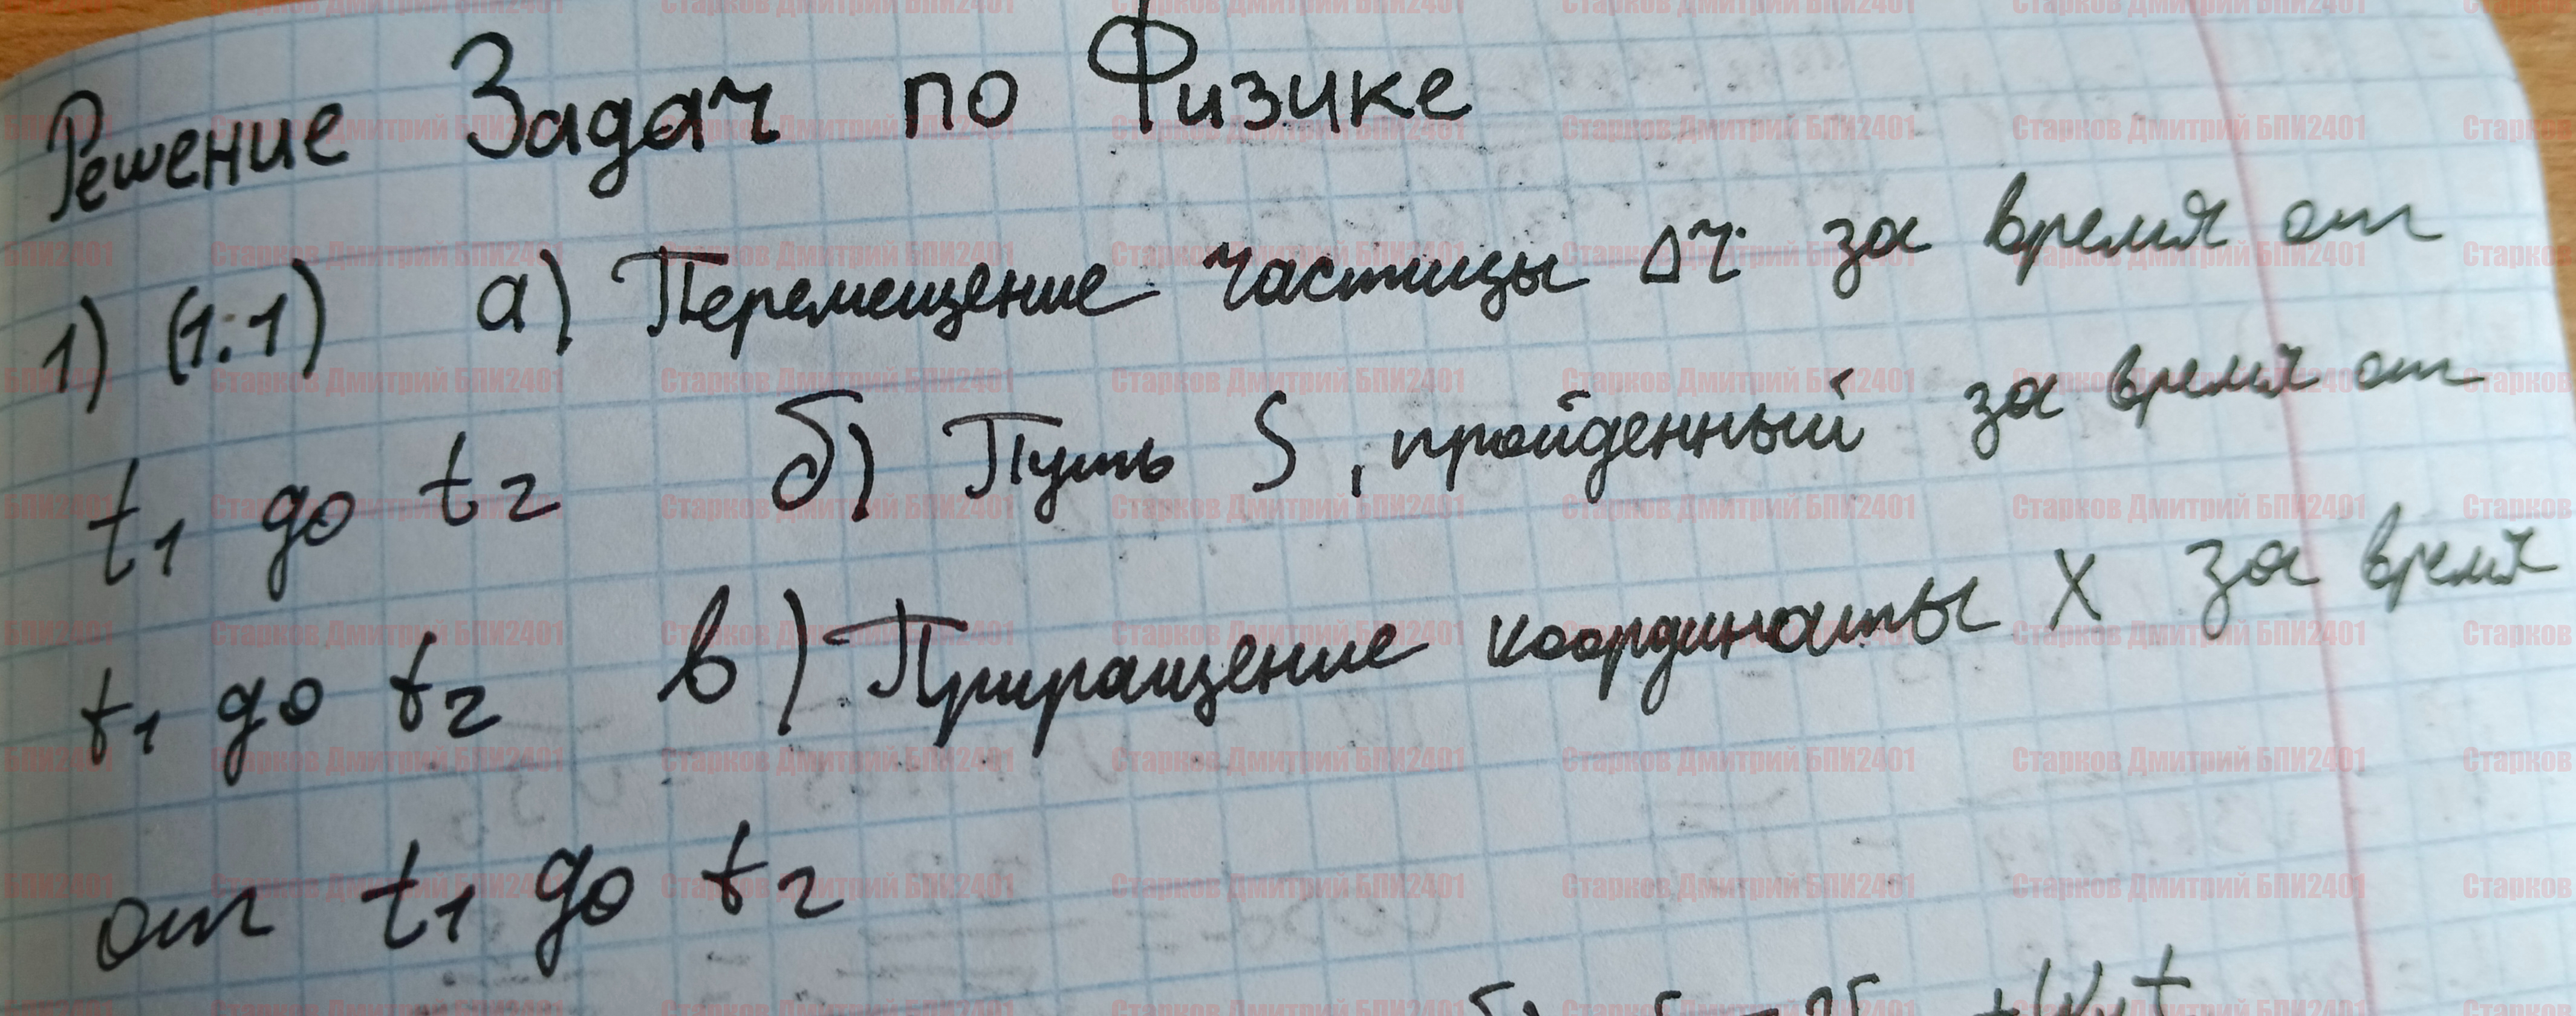 Решение Задач по Физике
1) (1.1) а) Перемещение частицы Δr за время от
t₁ до t₂ б) Путь S, пройденный за время от
t₁ до t₂ в) Приращение координаты X за время
от t₁ до t₂
Старков Дмитрий БПИ2401